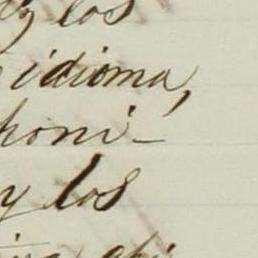 y los
idioma,
poni-
y los